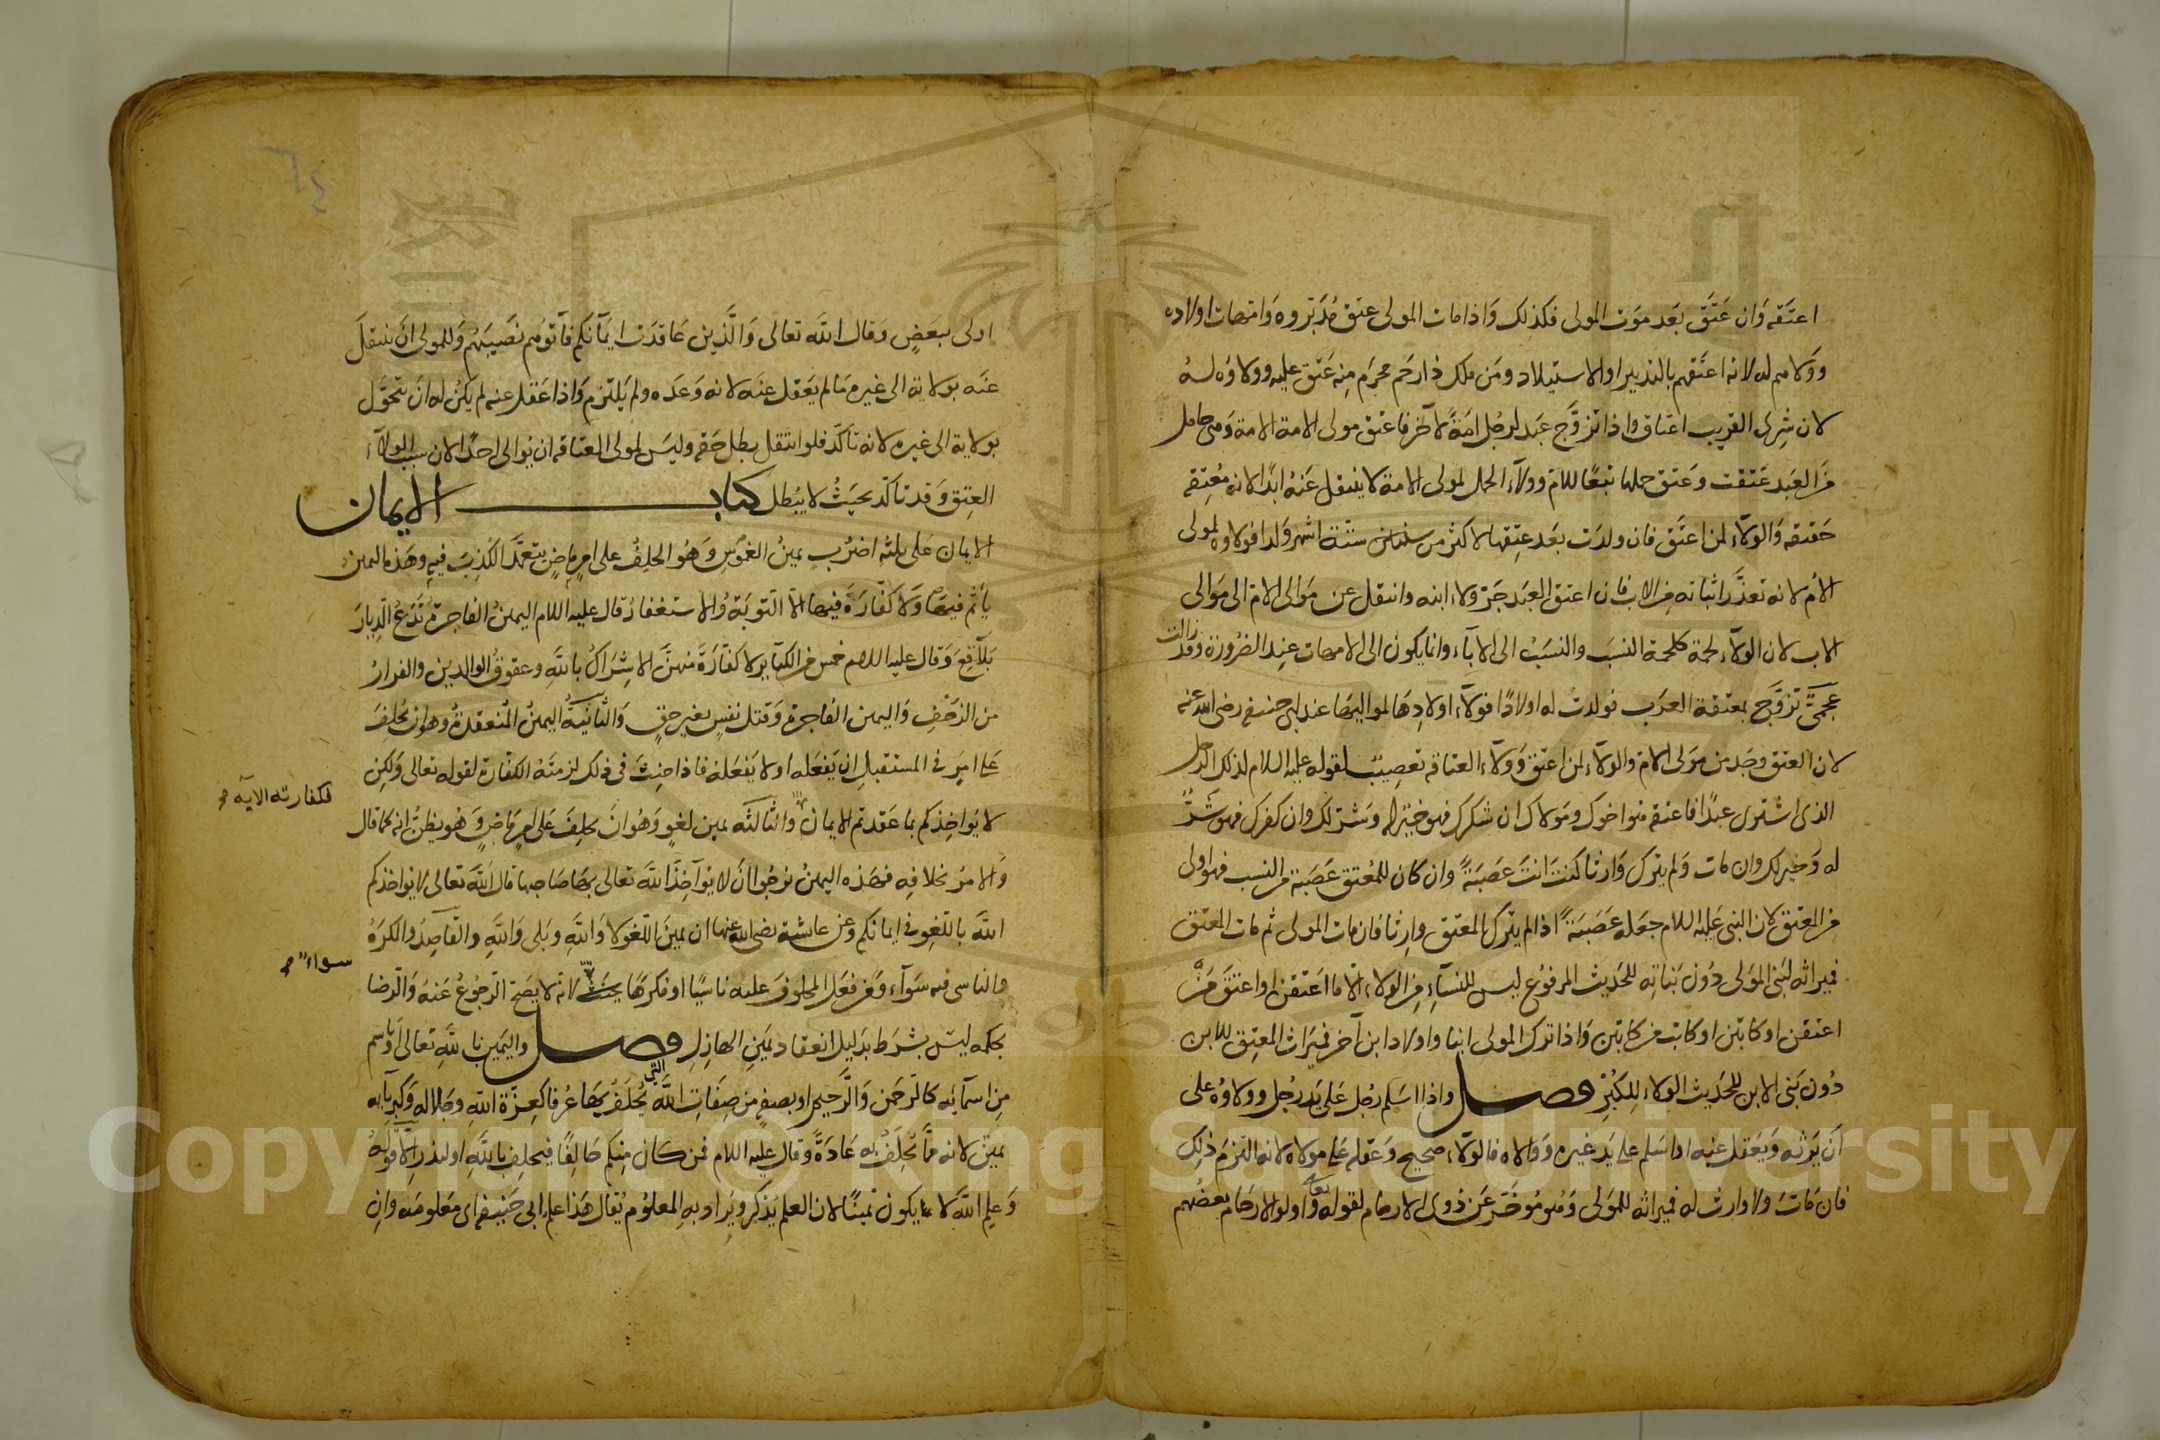 اعتقه وان عتق بعد موت المولى فكذلك واذا مات المولى عتق مدبروه وامهات اولاده
وولاهم له لانه اعتقهم بالتدبير او الاستيلاد ومن ملك ذا رحم محرم منه عتق عليه وولاؤه له
لان شرى القريب اعتاق واذا تزوج عبد لرجل امة لآخر فاعتق مولى الامة الامة وهى حامل
من العبد عتقت وعتق حملها تبعًا للام وولاء الحمل لمولى الامة لا ينتقل عنه ابدًا لانه معتقه
حقيقه والولاء لمن اعتق فان ولدت بعد عتقها لاكثر من ستة اشهر ولدا فولاوه لمولى
الام لانه تعذر اثباته من الاب فان اعتق العبد جر ولاء ابنه وانتقل عن موالى الام الى موالى
الاب لان الولاء لحمة كلحمة النسب والنسب الى الآباء وانما يكون الى الامهات عند الضرورة وقد زالت
عجمى تزوج بمعتقة العرب فولدت له اولادًا فولاء اولادها لمواليها عند ابى حنيفه رضى الله عنه
لان العتق وجد من مولى الام والولاء لمن اعتق وولاء العتاقه تعصيب لقوله عليه السلام لذلك الرجل
الذى اشترى عبدًا فاعتقه هو اخوك ومولاك ان شكرك فهو خير له وشر لك وان كفرك فهو شر
له وخير لك وان مات ولم يترك وارثا كنت انت عصبة وان كان للمعتق عصبة من النسب فهو اولى
من المعتق لان النبى عليه السلام جعله عصبة اذا لم يترك المعتق وارثا فان مات المولى ثم مات المعتق
فميراثه لبنى المولى دون بناته للحديث المرفوع ليس للنساء من الولاء الا ما اعتقن او اعتق من
اعتقن او كاتبن او كاتب من كاتبن واذا ترك المولى ابنا واولاد ابن آخر فميراث المعتق للابن
دون بنى الابن للحديث الولاء للكبر فصل واذا اسلم رجل على يد رجل وولاوه على
ان يرثه ويعقل عنه او اسلم على يد غيره ووالاه فالولاء صحيح وعقله على مولاه لانه التزم ذلك
فان مات ولا وارث له فميراثه للمولى وهو موخر عن ذوى الارحام لقوله تعالى واولوا الارحام بعضهم
٦٤
اولى ببعض وقال الله تعالى والذين عاقدت ايمانكم فآتوهم نصيبهم وللمولى ان ينتقل
عنه بولاية الى غيره ما لم يعقل عنه لانه وعده ولم يلتزم واذا عقل عنه لم يكن له ان يتحول
بولاية الى غيره لانه تأكد فلو انتقل بطل حقه وليس لمولى العتاقه ان يوالى احدًا لان سبب الولاء
العتق وقد تاكد بحيث لا يبطل كتاب الايمان
الايمان على ثلثه اضرب يمين الغموس وهو الحلف على امر ماض يتعمد الكذب فيه وهذه اليمين
ياثم فيها ولا كفارة فيها الا التوبة والاستغفار قال عليه السلام اليمين الفاجرة تدع الديار
بلاقع وقال عليه السلم خمس من الكبآير لا كفارة فيهن الاشراك بالله وعقوق الوالدين والفرار
من الزحف واليمين الفاجرة وقتل نفس بغير حق والثانية اليمين المنعقدة وهو ان يحلف
على امر فى المستقبل ان يفعله او لا يفعله فاذا حنث فى ذلك لزمته الكفارة لقوله تعالى ولكن
لا يواخذكم بما عقدتم الايمان والثالثه يمين لغو وهو ان يحلف على امر ماض وهو يظن انه كما قال
فكفارته الايه صح
والامر بخلافه فهذه اليمين نرجوا ان لا يوآخذ الله تعالى بها صاحبها قال الله تعالى لا يواخذكم
الله باللغو فى ايمانكم وعن عائشة رضى الله عنها ان يمين اللغو لا والله وبلى والله والقاصد والمكره
سواء صح
والناسى فيه سوآء ومن فعل المحلوف عليه ناسيًا او مكرها يحنث لانه لا يصح الرجوع عنه والرضا
بحكمه ليس بشرط بدليل انعقاد يمين الهازل فصل واليمين بالله تعالى او باسم
من اسمآئه كالرحمن والرحيم او بصفة من صفات الله التى يحلف بها عرفا كعزة الله وجلاله وكبريآئه
يمين لانه مما يحلف به عادة وقال عليه السلام فمن كان منكم حالفًا فليحلف بالله او ليذر الا قوله
وعلم الله لا يكون يمينًا لان العلم يذكر ويراد به المعلوم يقال هذا علم ابى حنيفه اى معلومه وان